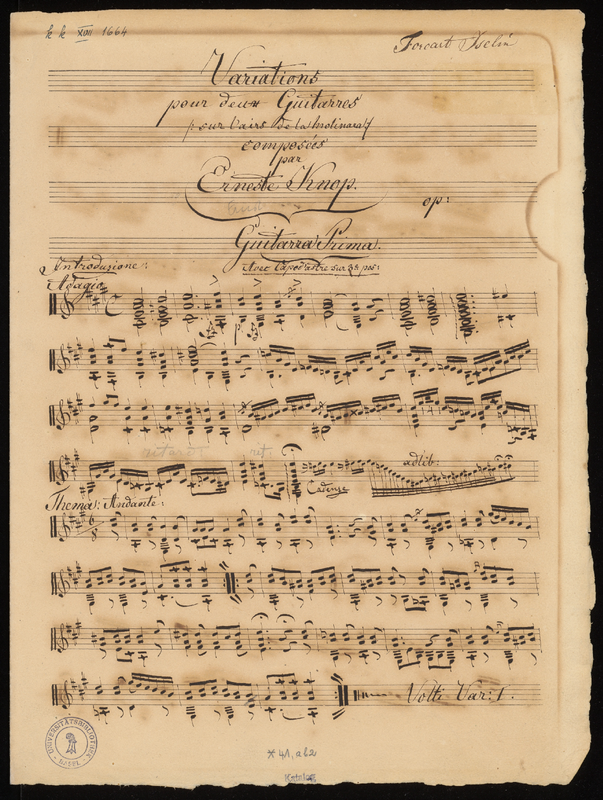 kk XVII 1664
Forcart Iselin
Variations
pour deux Guitarres
/: sur l'airs de la Molinara :/
composées
par
Erneste Knop.
op:
Guitarra Prima.
Introduzione:
Avec Capod'astre sur 3te pos:
Adagio
ritard:
rit.
Cadenze
adlib:
Thema: Andante:
Volti Var: 1.
UNIVERSITÄTSBIBLIOTHEK
BASEL
* 41, ab2
Katalog